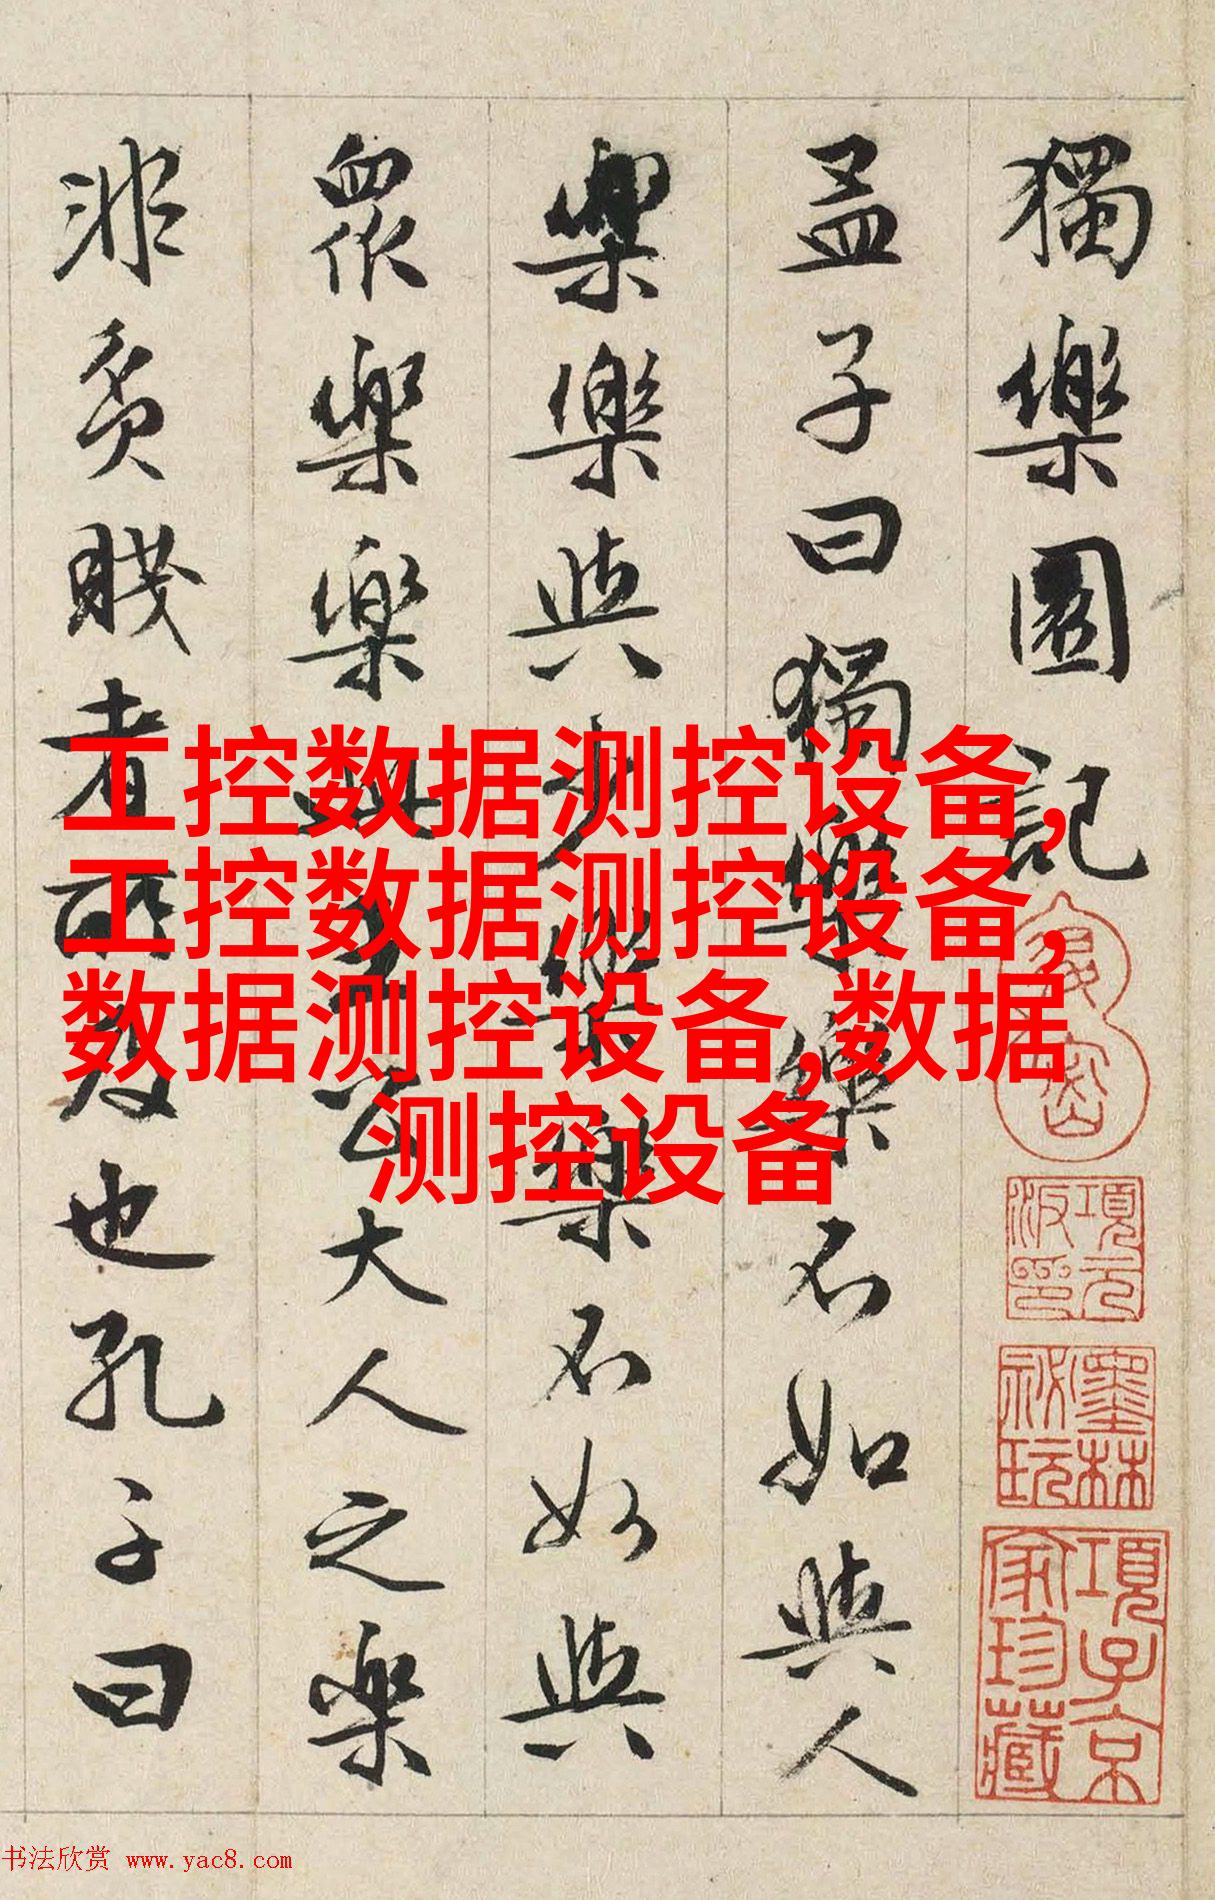 獨樂園記
孟子曰獨樂樂不如與人
樂樂與少樂樂不如與
眾樂樂此王公大人之樂
非貧賤者所及也孔子曰
工控数据测控设备,
工控数据测控设备,
数据测控设备,数据
测控设备
退密
項元汴印
墨林秘玩
項子京家珍藏
书法欣赏 www.yac8.com